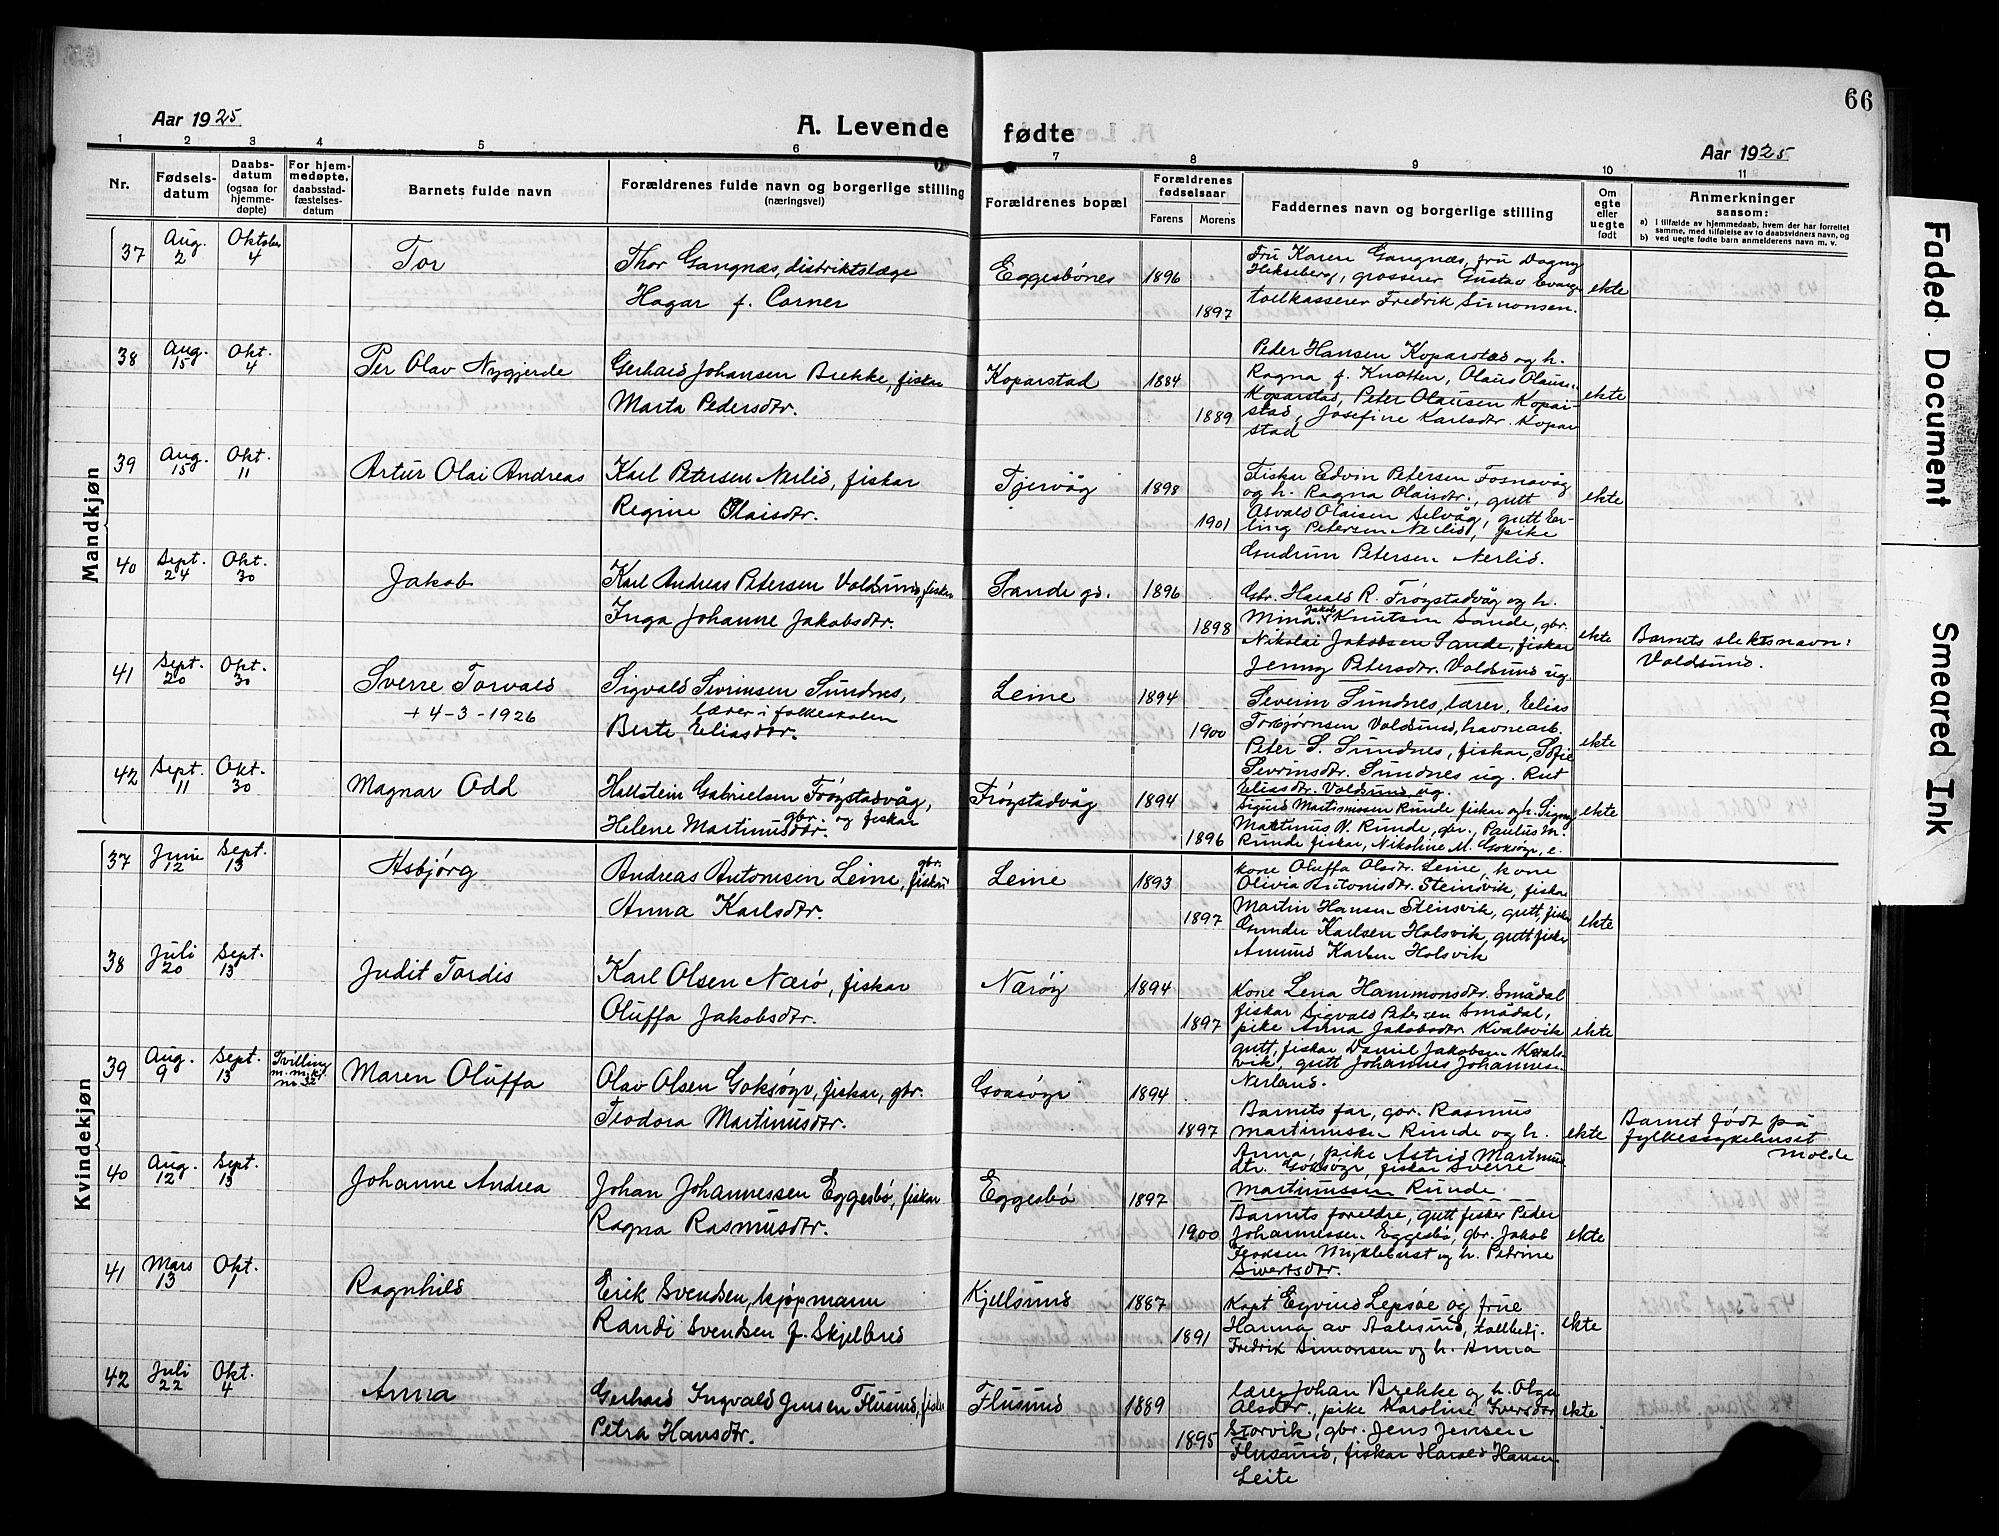 66
Aar 1925
A. Levende fødte
Aar 1925
1 2 3 4 5 6 7 8 9 10 11
Nr.
Fødsels-
datum
Daabs-
datum
(ogsaa for
hjemme-
døpte)
For hjem-
medøpte,
daabsstad-
fæstelses-
datum
Barnets fulde navn
Forældrenes fulde navn og borgerlige stilling
(næringsvei)
Forældrenes bopæl
Forældrenes
fødselsaar
Farens
Morens
Faddernes navn og borgerlige stilling
Om
egte
eller
uegte
født
Anmerkninger
saasom:
a) I tilfælde av hjemmedaab, hvem der har forrettet
samme, med tilføielse av to daabsvidners navn, og
b) ved uegte fødte barn anmelderens navn m. v.
Mandkjøn
37 Aug. 2 Oktober 4
Tor
Thor Gangnæs, distriktslæge
Hagar f. Carner
Eggesbönes
1896
1897
Fru Karen Gangnæs, fru Dagny
grosserer Gustav
tollkasserer Fredrik Simonsen.
ekte
38 Aug. 15 Okt. 4
Per Olav Nygjerde
Gerhard Johansen Brekke, fiskar
Marta Pedersdtr.
Koparstad
1884
1889
Peder Hansen Koparstad og h.
Ragna f. Knotten, Olaus Olause-
Koparstad, Peter Olausen Kopar-
stad, Josefine Karlsdtr. Kopar
stad
ekte
39 Aug. 15 Okt. 11
Artur Olai Andreas
Karl Petersen Nerlid, fiskar
Regine Olaisdtr.
Tjervåg
1898
1901
Fiskar Edvin Petersen Fosnavåg
og h. Ragna Olaisdtr., gutt
Asvald Olaisen Selvåg, gutt Er-
ling Petersen Nerlid, pike
Gudrun Petersen Nerlid.
ekte
40 Sept. 24 Okt. 30
Jakob
Karl Andreas Petersen Voldsund, fiskar
Inga Johanne Jakobsdtr.
Sande gs.
1896
1898
Gbr. Harald R. Frøystadvåg og h.
Mina, Jakob Knutsen Sande, gbr.
Nikolai Jakobsen Sande, fiskar
Jenny Petersdtr. Voldsund ug.
ekte
Barnets slektsnavn:
Voldsund.
41 Sept. 20 Okt. 30
Sverre Torvald
+ 4-3-1926
Sigvald Sevrinsen Sundnes,
lærer i folkeskolen
Berte Eliasdtr.
Leine
1894
1900
Severin Sundnes, lærer, Elias
Torbjørnsen Voldsund, havnearb.
Peter S. Sundnes, fiskar, Sofie
Sevrinsdtr. Sundnes ug. Rut
Eliasdtr. Voldsund ug.
ekte
42 Sept. 11 Okt. 30
Magnar Odd
Hallstein Gabrielsen Frøystadvåg,
gbr. og fiskar
Helene Martinusdtr.
Frøystadvåg
1894
1896
Sigurd Martinussen Runde fiskar og h. Signy
Martinus V. Runde, gbr., Paulus M.
Runde fiskar, Nikoline M. Goksøyr, e.
ekte
Kvindekjøn
37 Juni 12 Sept. 13
Asbjörg
Andreas Antonesen Leine, gbr. fiskar
Anna Karlsdtr.
Leine
1893
1897
Kone Oluffa Olsdtr. Leine, kone
Olivia Antonisdtr. Steinsvik, fiskar
Martin Hansen Steinsvik, gutt, fiskar
Gunder Karlsen Holsvik, gutt fisker
Amund Karlsen Holsvik
ekte
38 Juli 20 Sept. 13
Judit Tordis
Karl Olsen Nærø, fiskar
Oluffa Jakobsdtr.
Nærøy
1894
1897
Kone Lena Hammonsdtr. Smådal
fiskar Sigvald Petersen Smådal,
pike Anna Jakobsdtr Kvalsvik
gutt, fiskar Daniel Jakobsen Kvals-
vik, gutt Johannes Johannes-
Nerland.
ekte
39 Aug. 9 Sept. 13
Tvilling
m. m.k.
nr. 32
Maren Oluffa
Olav Olsen Goksøyr, fiskar, gbr.
Teodora Martinusdtr.
Goksøyr
1894
1897
Barnets far, gbr. Rasmus
Martinussen Runde og h.
Anna, pike Astrid Martinus
dtr. Goksöyr, fiskar Sverre
Martinussen Runde.
ekte
Barnet født på
fylkessykehuset
Molde
40 Aug. 12 Sept. 13
Johanne Andrea
Johan Johannessen Eggesbø, fiskar
Ragna Rasmusdtr.
Eggesbø
1897
1900
Barnets foreldre, gutt fisker Peder
Johannessen Eggesbø, gbr. Jakob
Myklebust og h. Petrine
Sivertsdtr.
ekte
41 Mars 13 Okt. 1
Ragnhild
Erik Svendsen, kjøpmann
Randi Svendsen f. Skjelbred
Kjellsund
1887
1891
Kapt Eyvind Lepsöe og frue
Hanna av Aalesund, tollbetj.
Fredrik Simonsen og h. Anna
ekte
42 Juli 22 Okt. 4
Anna
Gerhard Ingvald Jensen Flusund, fiskar
Petra Hansdtr.
Flusund
1889
1895
lærer Johan Brekke og h. Olga
Alsdtr., pike Karoline Iversdtr
Storvik, gbr. Jens Jensen
Flusund, fiskar Harald Hansen
Leite
ekte
Faded Document
Smeared Ink